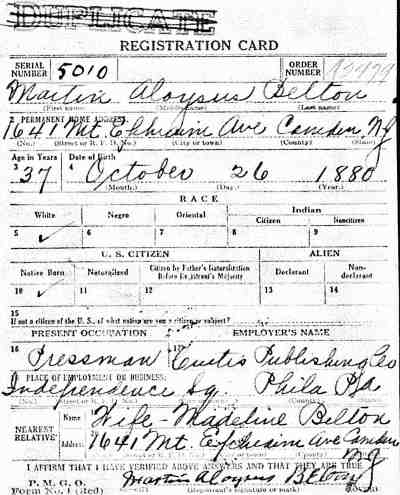 DUPLICATE
REGISTRATION CARD
SERIAL NUMBER 5010 ORDER NUMBER
Martin Aloysus Belton
(First name) (Middle name) (Last name)
2 PERMANENT HOME ADDRESS:
1641 Mt. Ephraim Ave Camden NJ
(No.) (Street or R. F. D. No.) (City or town) (County) (State)
Age in Years Date of Birth
3 37 4 October 26 1880
(Month.) (Day.) (Year.)
RACE
White Negro Oriental Indian
Citizen Noncitizen
5 ✓ 6 7 8 9
U. S. CITIZEN ALIEN
Native Born Naturalized Citizen by Father's Naturalization Before Registrant's Majority Declarant Non-declarant
10 ✓ 11 12 13 14
15
If not a citizen of the U. S., of what nation are you a citizen or subject?
PRESENT OCCUPATION EMPLOYER'S NAME
16 Pressman 17 Curtis Publishing Co
PLACE OF EMPLOYMENT OR BUSINESS:
Independence Sq. Phila Pa
(No.) (Street or R. F. D. No.) (City or town) (County) (State)
NEAREST RELATIVE Name Wife - Madeline Belton
Address 1641 Mt. Ephraim Ave Camden NJ
I AFFIRM THAT I HAVE VERIFIED ABOVE ANSWERS AND THAT THEY ARE TRUE
P. M. G. O.
Form No. 1 (Red) Martin Aloysus Belton
(Registrant's signature or mark)